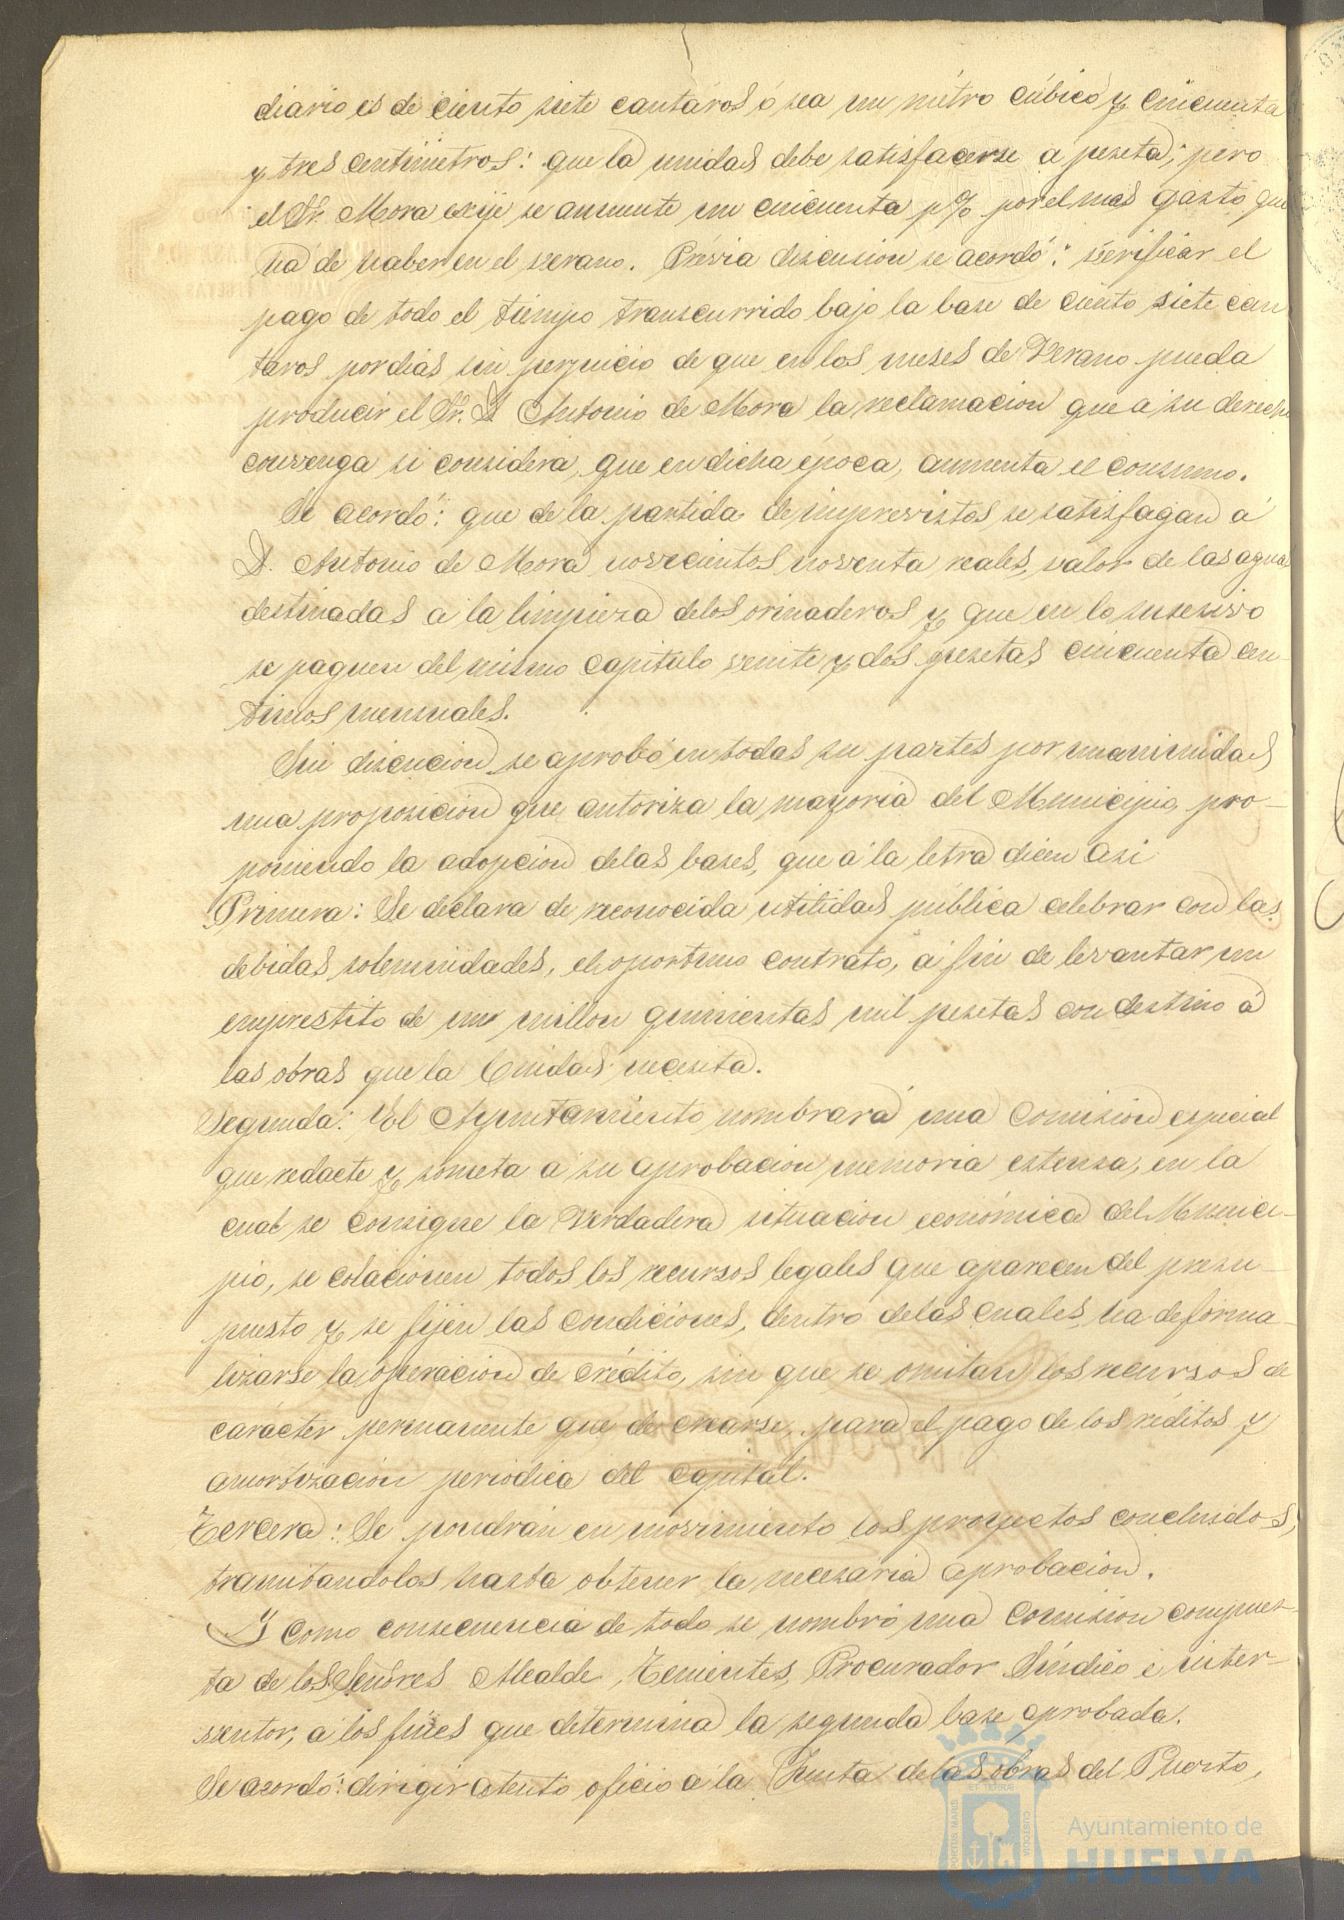 diario es de ciento siete cantaros ó sea un métro cúbico y cincuenta
y tres centimetros: que la unidad debe satisfacerse a peseta; pero
el Sr. Mora exije se aumente un cincuenta p% por el mas gasto que
ha de haber en el verano. Prévia discusion se acordó: verificar el
pago de todo el tiempo transcurrido bajo la base de ciento siete can
taros por dias sin perjuicio de que en los meses de Verano pueda
producir el Sr. D Antonio de Mora la reclamacion que a su derecho
convenga si considera, que en dicha época, aumenta el consumo.
Se acordó: que de la partida de imprevistos se satisfagan á
D. Antonio de Mora novecientos noventa reales, valor de las aguas
destinadas a la limpieza de los orinaderos y que en lo susesivo
se paguen del mismo capitulo veinte y dos pesetas cincuenta cen-
timos mensuales.
Sin discucion se aprobó en todas su partes por unanimidad
una proposicion que autoriza la mayoria del Municipio, pro-
poniendo la adopcion de las bases, que a la letra dicen asi
Primera: Se declara de reconocida utilidad pública celebrar con las
debidas solemnidades, el oportuno contrato, a fin de levantar un
emprestito de un millon quinientas mil pesetas con destino á
las obras que la Ciudad necesita.
Segunda: El Ayuntamiento nombrará una Comision especial
que redacte y someta a su aprobacion memoria estensa, en la
cual se consigne la Verdadera situacion económica del Munici-
pio, se colacionen todos los recursos legales que aparecen del presu-
puesto y se fijen las condiciones, dentro de las cuales, ha de forma-
lizarse la operacion de crédito, sin que se omitan los recursos de
carácter permanente que de crearse, para el pago de los réditos y
amortizacion periodica del capital.
Tercera: Se pondran en movimiento los proyectos concluidos,
tramitandolos hasta obtener la necesaria aprobacion.
Y como consecuencia de todo se nombró una Comision compues-
ta de los Señores Alcalde, Tenientes, Procurador Síndico é inter-
ventor, a los fines que determina la segunda base aprobada.
Se acordó: dirigir atento oficio a la Junta de las obras del Puerto,
Ayuntamiento de
HUELVA